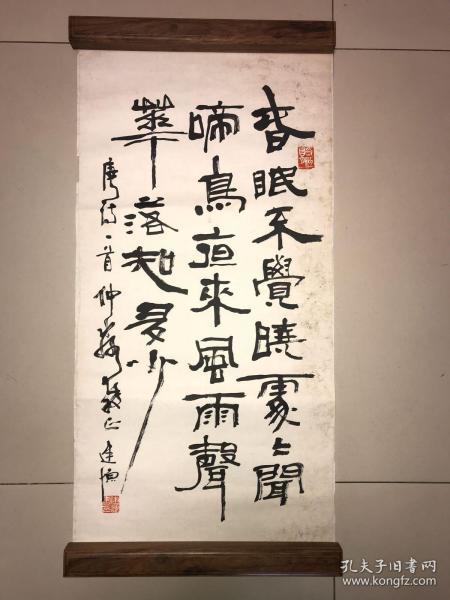 春眠不覺曉處々聞
啼鳥夜來風雨聲
華落知多少
唐诗一首 仲 正
孔夫子旧书网
www.kongfz.com